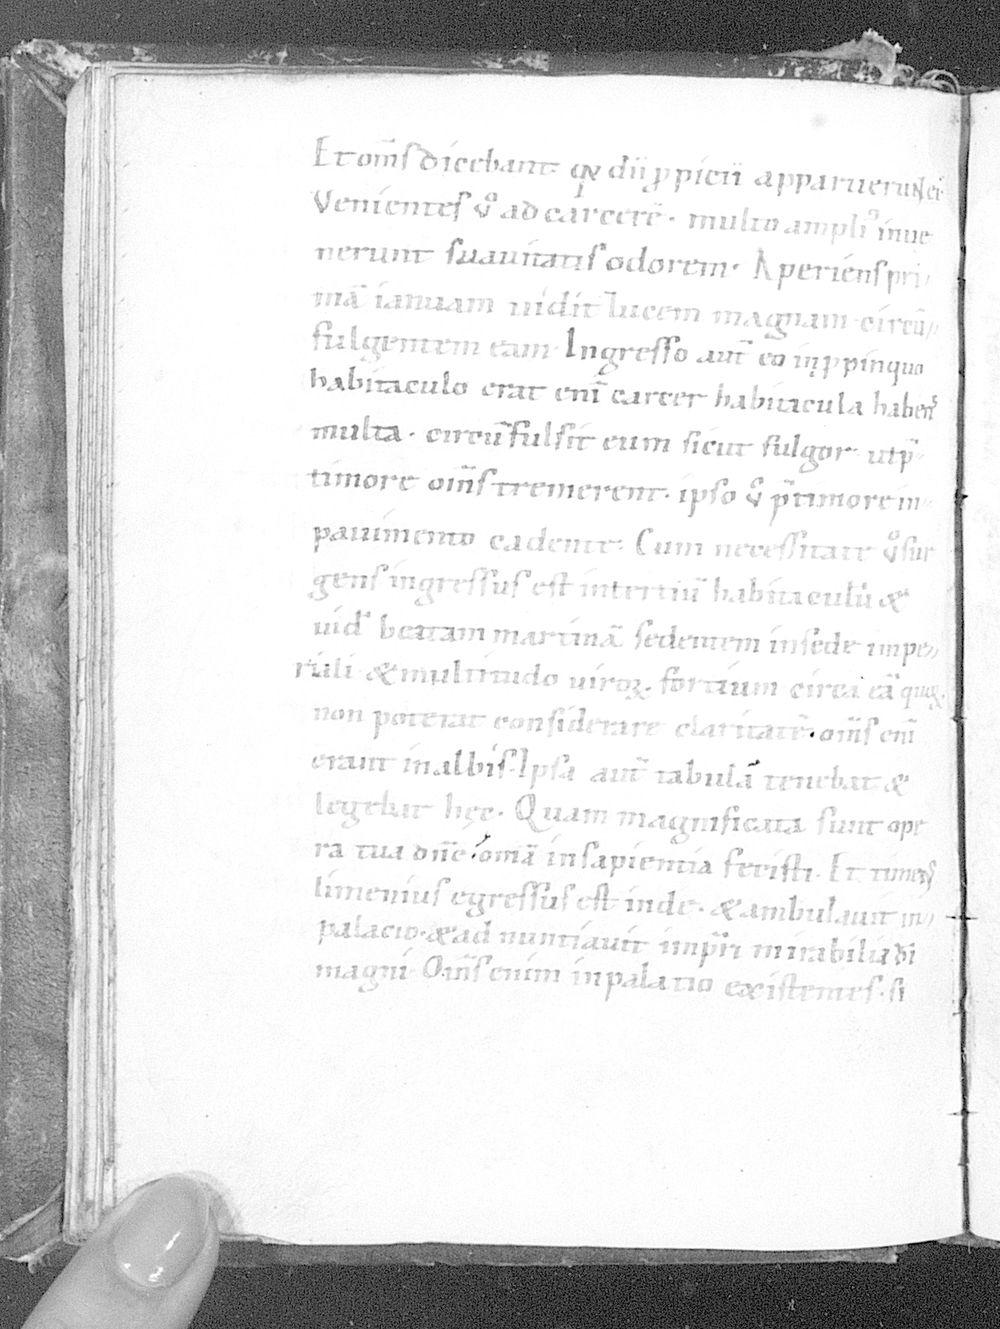 Et om̄s dicebant qđ dii ꝓpicii apparuerunt ei.
Venientes ů ad carcerē. multo ampliꝰ inue
nerunt suauitatis odorem. Aperiens pri-
mā ianuam uidit lucem magnam circū-
fulgentem eam. Ingresso aut̄ eo in ꝓpinquo
habitaculo erat eni̅ carcer habitacula habens
multa. circūfulsit eum sicut fulgor. ut p̄
timore om̄s tremerent. ipso ů p̄ timore in
pauimento cadente. Cum necessitate ů sur
gens ingressus est in tertiū habitaculū &
uid' beatam martinā sedentem in sede impe-
riali & multitudo uiroꝝ fortium circa eā quaꝝ
non poterat considerare claritatē. om̄s eni̅
erant in albis. Ipsa aut̄ tabulā tenebat &
legebat hęc. Quam magnificata sunt ope
ra tua dn̄e omā in sapientia fecisti. Et timens
limenius egressus est inde. & ambulauit in-
palacio. & ad nuntiauit imp̄ri mirabilia di
magni. Om̄s enim in palatio existentes. si